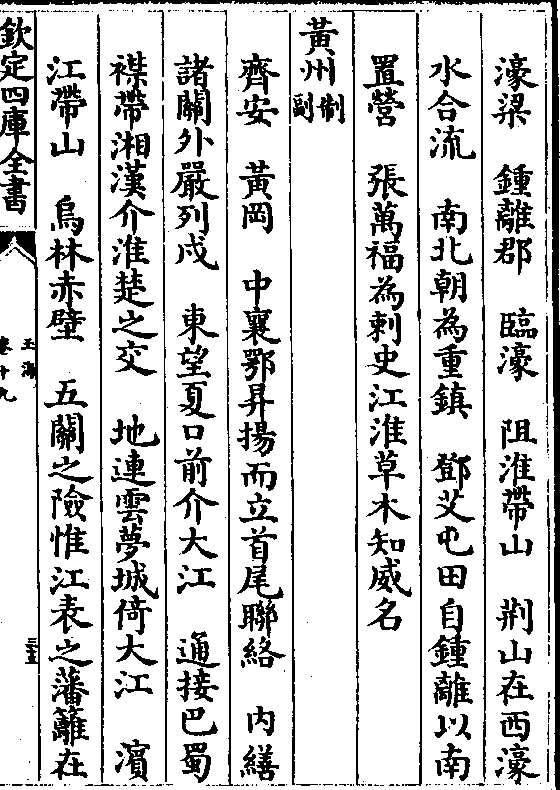 濠梁　鍾離郡　臨濠　阻淮帶山　荆山在西濠
水合流　南北朝為重鎮　鄧艾屯田自鍾離以南
置營　張萬福為刺史江淮草木知威名
黃州制副
齊安　黃岡　中襄鄂昇揚而立首尾聯絡　内繕
諸關外嚴列戍　東望夏口前介大江　通接巴蜀
襟帶湘漢介淮楚之交　地連雲夢城倚大江　濱
江帶山　烏林赤壁　五關之險惟江表之藩籬在
欽定四庫全書
玉海
卷十九